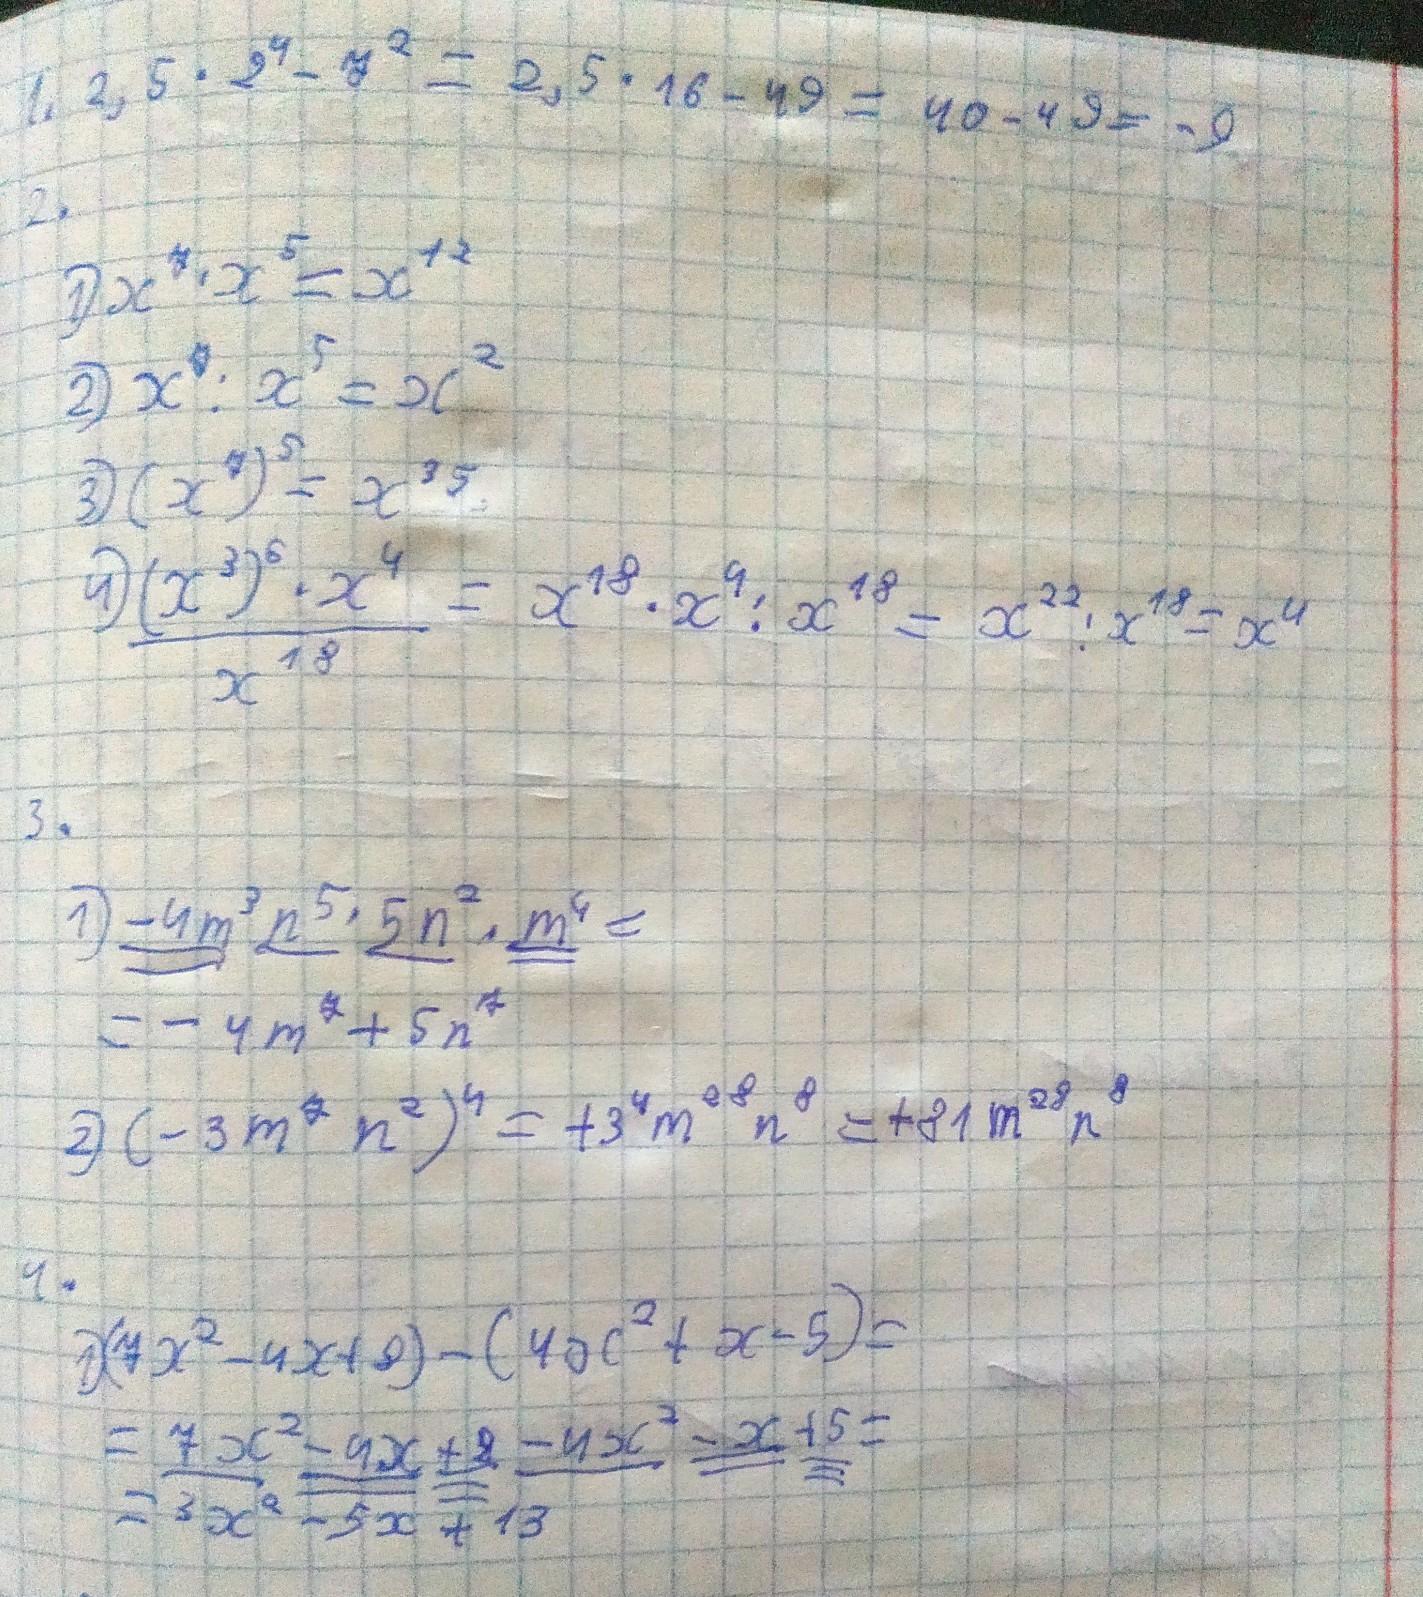 1. 2,5 · 2⁴ - 7² = 2,5 · 16 - 49 = 40 - 49 = -9
2.
1) x⁷ · x⁵ = x¹²
2) x⁷ : x⁵ = x²
3) (x⁷)⁵ = x³⁵
4) (x³)⁶ · x⁴ / x¹⁸ = x¹⁸ · x⁴ : x¹⁸ = x²² : x¹⁸ = x⁴
3.
1) -4m³ n⁵ · 5n² · m⁴ =
= - 4m⁷ + 5n⁷
2) (-3m⁷ n²)⁴ = +3⁴m²⁸n⁸ = +81m²⁸n⁸
4.
1) (7x² - 4x + 8) - (4x² + x - 5) =
= 7x² - 4x + 8 - 4x² - x + 5 =
= 3x² - 5x + 13